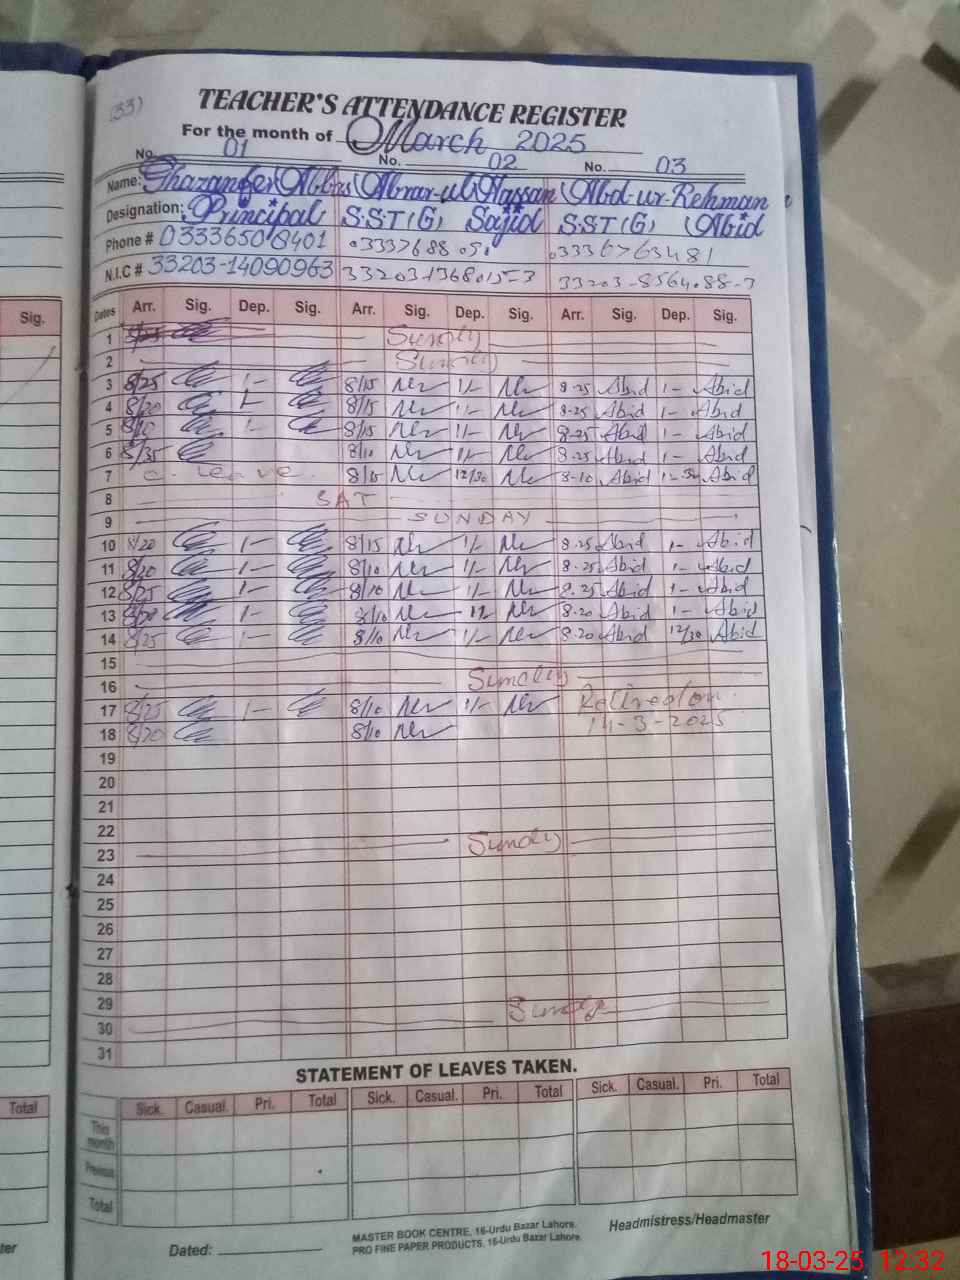 (33)
TEACHER'S ATTENDANCE REGISTER
For the month of March 2025
No. 01 No. 02 No. 03
Name: Ghazanfer Abbas Abrar-ul-Hassan Abd-ur-Rehman
Designation: Principal S.S.T(G) Sajid SST(G) Abid
Phone # 03336508401 03336763481
N.I.C # 33203-14090963
Sig. Dates Arr. Sig. Dep. Sig. Arr. Sig. Dep. Sig. Arr. Sig. Dep. Sig.
1 8/25 Sunday
2 Sunday
3 8/25 1- 8/15 1/- 8-25 Abid 1- Abid
4 8/20 1- 8/15 1/- 8-25 Abid 1- Abid
5 8/10 1- 8/15 1/- 8-25 Abid 1- Abid
6 8/35 8/10 1/- 8-25 Abid 1- Abid
7 C. leave 8/15 12/30 8-10 Abid 12-30 Abid
8 SAT
9 SUNDAY
10 8/20 1- 8/15 1/- 8.25 Abid 1- Abid
11 8/20 1- 8/10 1/- 8-25 Abid 1- Abid
12 8/25 1- 8/10 1/- 8.25 Abid 1- Abid
13 8/20 1- 8/10 1/- 8-20 Abid 1- Abid
14 8/25 1- 8/10 1/- 8.20 Abid 12/30 Abid
15
16 Sunday
17 8/25 1- 8/10 1/- Retired on
18 8/20 8/10 14-3-2025
19
20
21
22
23 Sunday
24
25
26
27
28
29 Sunday
30
31
STATEMENT OF LEAVES TAKEN.
Total Sick. Casual. Pri. Total Sick. Casual. Pri. Total Sick. Casual. Pri. Total
This month
Previous
Total
ter Dated: MASTER BOOK CENTRE, 16-Urdu Bazar Lahore. Headmistress/Headmaster
PRO FINE PAPER PRODUCTS, 16-Urdu Bazar Lahore.
18-03-25 12:32